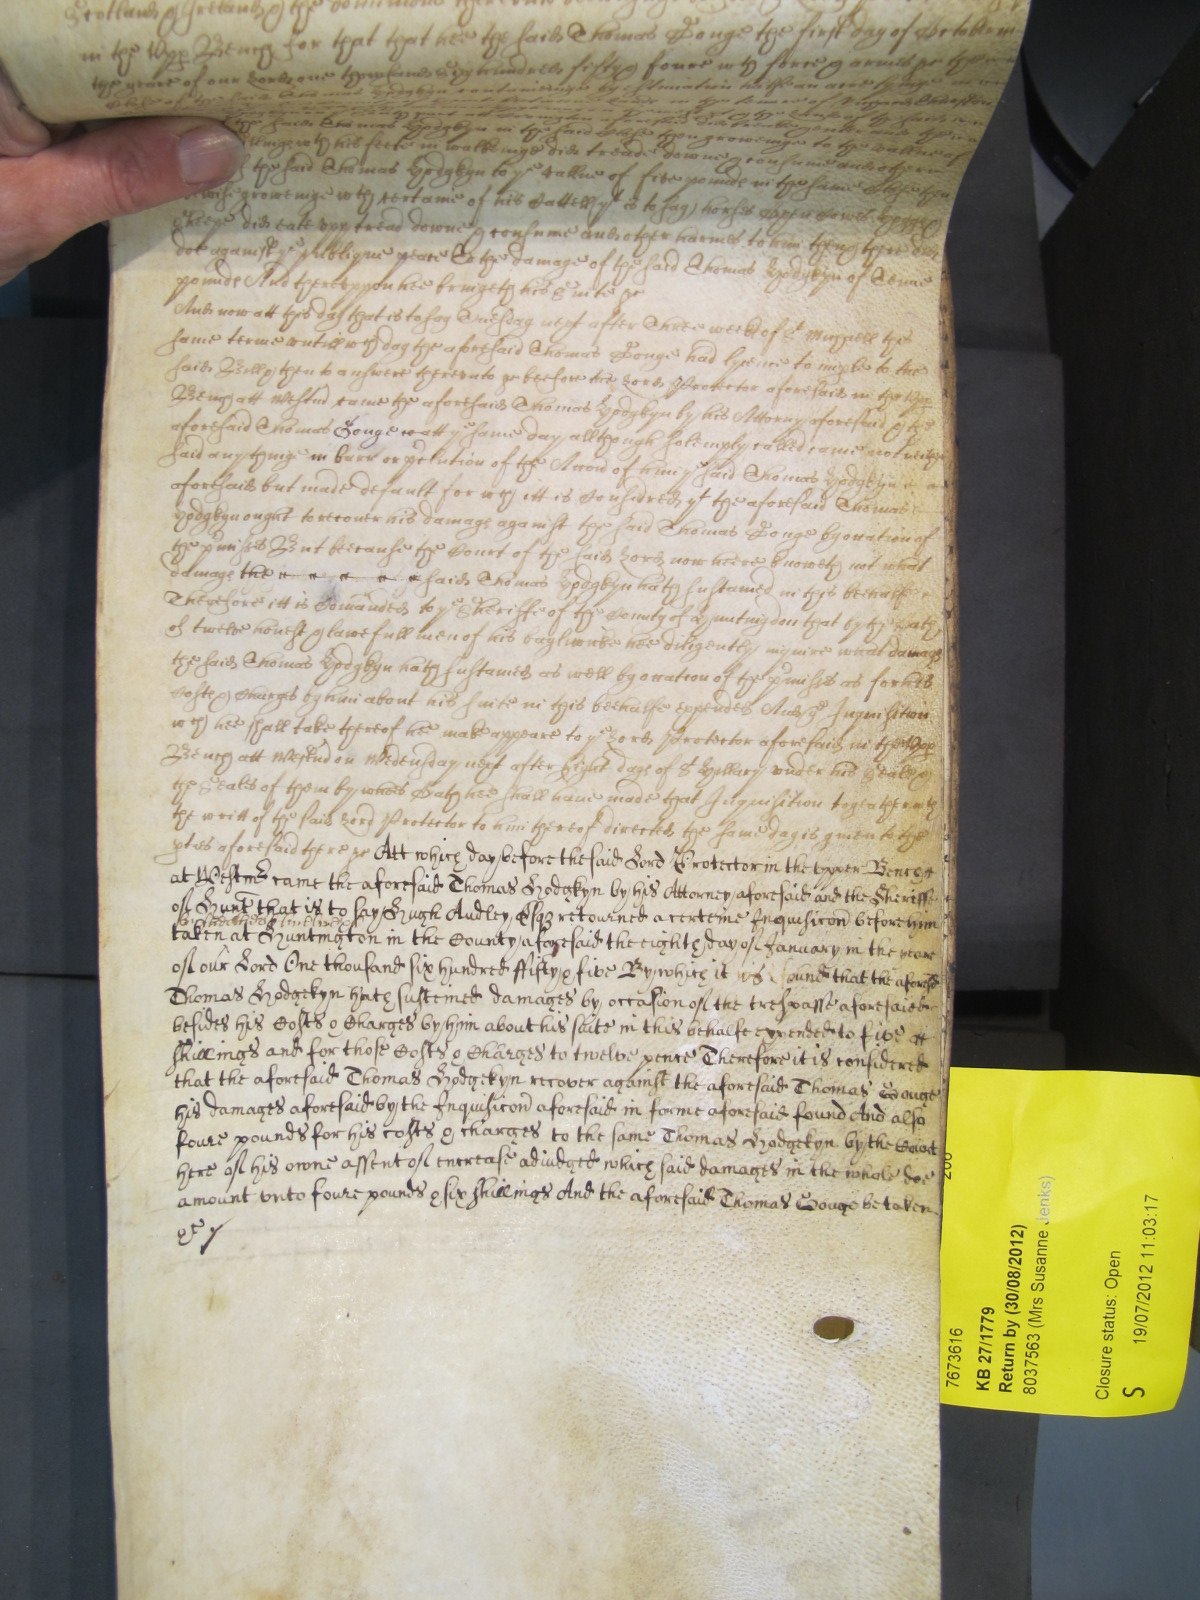 Scotland & Ireland & the dominions thereunto belonginge
in the Upp Bench for that that hee the said Thomas Gouge the first day of October in
the yeare of our Lord one thowsand six hundred fifty & foure wth force & armes &c the
the said Thomas Hodgkyn in the said Close then groweinge to the vallue of
with his feete in walkeinge did treade downe & consume and other
the said Thomas Hodgkyn to ye vallue of five pounds in the same Close then
likewise groweinge wth certaine of his Cattell yt is to say horses oxen cowes hogges
sheepe did eate upp tread downe & consume and other harmes to him then & there did
doe against ye publique peace To the damage of the said Thomas Hodgkyn of Tenne
pounds And thereuppon hee bringeth his suite &c
And now att this day that is to say Tuesday next after Three weekes of St Michaell this
same terme untill wch day the aforesaid Thomas Gouge had lycence to imple to the
said Bill & then to answere thereunto &c beefore the Lord Protector aforesaid in the Upp
Bench att Westmr came the aforesaid Thomas Hodgkyn by his Attorny aforesaid & the
aforesaid Thomas Gouge att ye same day allthough solemply called came not neither
said anythinge in barr or p'clusion of the Accon of him ye said Thomas Hodgkyn
aforesaid but made default for wch itt is Considred yt the aforesaid Thomas
Hodgkyn ought to recover his damage against the said Thomas Gouge by occation of
the p'misses But beecause the Court of the said Lord now heere knoweth not what
damage the said Thomas Hodgkyn hath sustained in this beehalfe
Therefore itt is Comanded to ye Sheriffe of the County of Huntingdon that by the oath
of twelve honest & lawefull men of his baylywicke hee diligently inquire what damage
the said Thomas Hodgkyn hath sustained as well by occation of the p'misses as for his
Costs & Charges by him about his suite in this beehalfe expended And ye Inquisition
wch hee shall take thereof hee make appeare to ye Lord Protector aforesaid in the Upp
Bench att Westmr on Wedensday next after Eight dayes of St Hyllary under his Seale &
the Seales of them by whose Oath hee shall have made that Inquisition togeather wth
the writt of the said Lord Protector to him thereof directed the same day is given to the
pties aforesaid there &c Att which day before the said Lord Protector in the upper Bench
at Westmr came the aforesaid Thomas Hodgkyn by his Attorney aforesaid and the Sheriffe
of Hunt that is to say Hugh Audley Esqr retourned a certeine Inquisicon before him
taken at Huntington in the County aforesaid the eighth day of January in the yeare
of our Lord One thousand six hundred ffifty & five By which it is found that the aforesd
Thomas Hodgekyn hath susteined damages by occasion of the trespasse aforesaid
besides his Costs & Charges by him about his suite in this behalfe expended to five
shillings and for those Costs & Charges to twelve pence Therefore it is considered
that the aforesaid Thomas Hodgekyn recover against the aforesaid Thomas Gouge
his damages aforesaid by the Inquisicon aforesaid in forme aforesaid found And also
foure pounds for his costs & charges to the same Thomas Hodgekyn by the Court
here of his owne assent of encrease adjudged which said damages in the whole doe
amount unto foure pounds & six shillings And the aforesaid Thomas Gouge be taken
&c
7673616
KB 27/1779
Return by (30/08/2012)
8037563 (Mrs Susanne Jenks)
Closure status: Open
S 19/07/2012 11:03:17